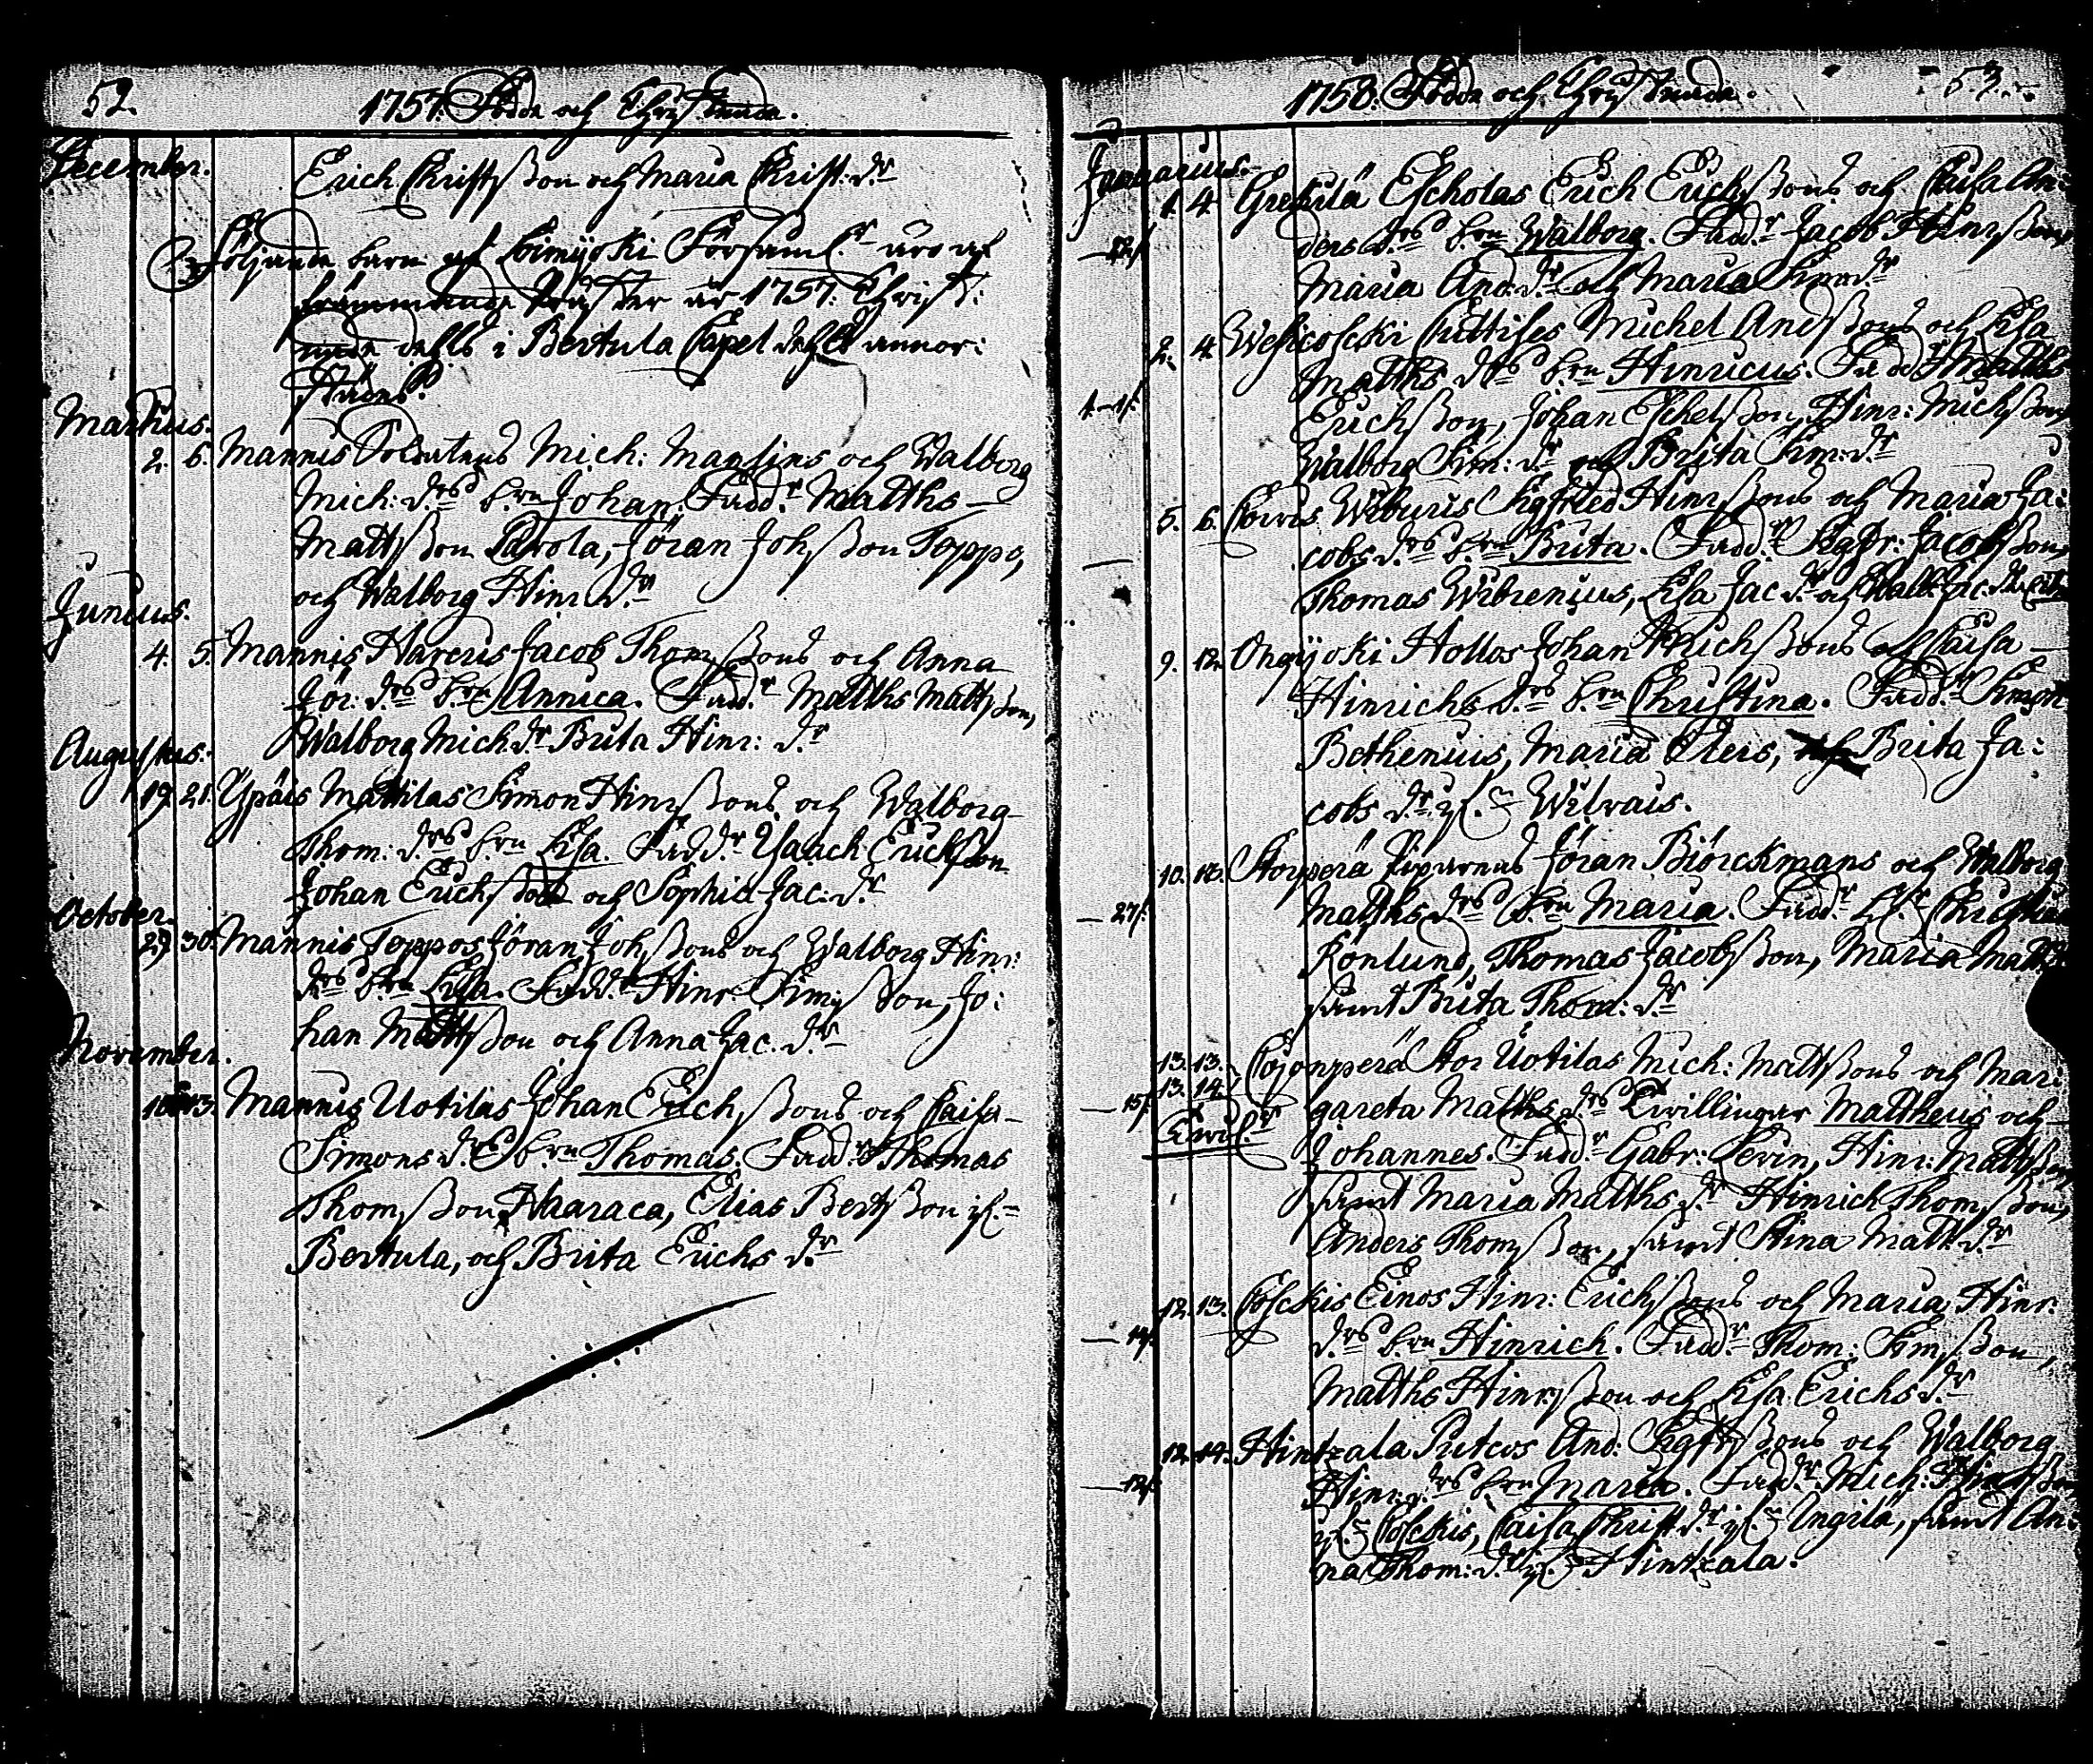 52.
1757. Födde och Christnade.
December.
Erich Christsson och Maria Christ: dr
Följande barn af Loimijoki Församl:r äro af
främmande Präster år 1757. Christ:
nade dehls i Bertula Capel dehls annor:
städes.
Martius.
2. 6. Mannis Soldatens Mich: Manlins och Walborg
Mich: drs brn Johan. Fadd:r Matths
Mattsson Parola, Jöran Johsson Toppo,
och Walborg Hinr: dr
Junius.
4. 5. Mannis Harcus Jacob Thomssons och Anna
Jör: drs brn Annica. Fadd:r Matths Mattsson,
Walborg Mich: dr Brita Hinr: dr
Augustus.
19. 21. Ypäis Mattilas Simon Hinrssons och Walborg
Thom: drs brn Lisa. Fadd:r Isaach Erichsson
Johan Erichsson och Sophia Jac: dr
October.
29. 30. Mannis Toppos Jöran Johssons och Walborg Hinr:
drs brn Lisa. Fadd:r Hinr: Simsson, Jo:
han Mattsson och Anna Jac. dr
November.
13. Mannis Uotilas Johan Erichssons och Caisa
Simons drs brn Thomas. Fadd:r Thomas
Thomsson Haaraca, Elias Bertsson if:n
Bertula, och Brita Erichs dr
1758. Födde och Christnade.
53.
Januarius.
1. 4. Grekilä Escholas Erich Erichssons och Caisa An:
ders drs brn Walborg. Fadd:r Jacob Hinrsson,
Maria And: dr och Maria Sim: dr
2. 4. Wesicoscki Cuttises Michel Andssons och Lisa
Matths drs brn Hinricus. Fadd:r Matths
Erichsson, Johan Eschelsson, Hinr: Michsson,
Walborg Sim: dr och Brita Sim: dr
5. 6. Wiburis Sigfried Hinrssons och Maria Ja:
cobs drs brn Brita. Fadd:r Sigfr: Jacobsson,
Thomas Wibrenius, Lisa Jac. dr och Walb: Jac. dr
9. 12. Ongijoki Hollos Johan Michssons och Caisa
Hinrichs drs brn Christina. Fadd:r Simon
Bethenius, Maria Elers, Brita Ja:
cobs dr if:n Wilvais.
10. Storperä Piparens Jöran Biörckmans och Walborg
27. Matths drs brn Maria. Fadd:r Christina
Rönlund, Thomas Jacobsson, Maria Matts
samt Brita Thom: dr
13. 13. Pojonperä Stor Uotilas Mich: Mattssons och Mar:
13. 14.
15. gareta Matths drs Twillingar Mattheus och
Johannes. Fadd:r Gabr: Levin, Hinr: Mattsson,
samt Maria Matths dr Hinrich Thomsson,
Anders Thomsson, samt Stina Matt: dr
12. 13. Coschis Einos Hinr: Erichssons och Maria Hinr:
drs brn Hinrich. Fadd:r Thom: Simsson,
Matths Hinrsson och Lisa Erichs dr
12. 14. Hintzala Putcos And: Sigfrssons och Walborg
Hinr: drs brn Maria. Fadd:r Mich:
if:n Coschis, Caisa Christ: dr if:n Angilä, samt An:
na Thom: dr if:n Hintzala.